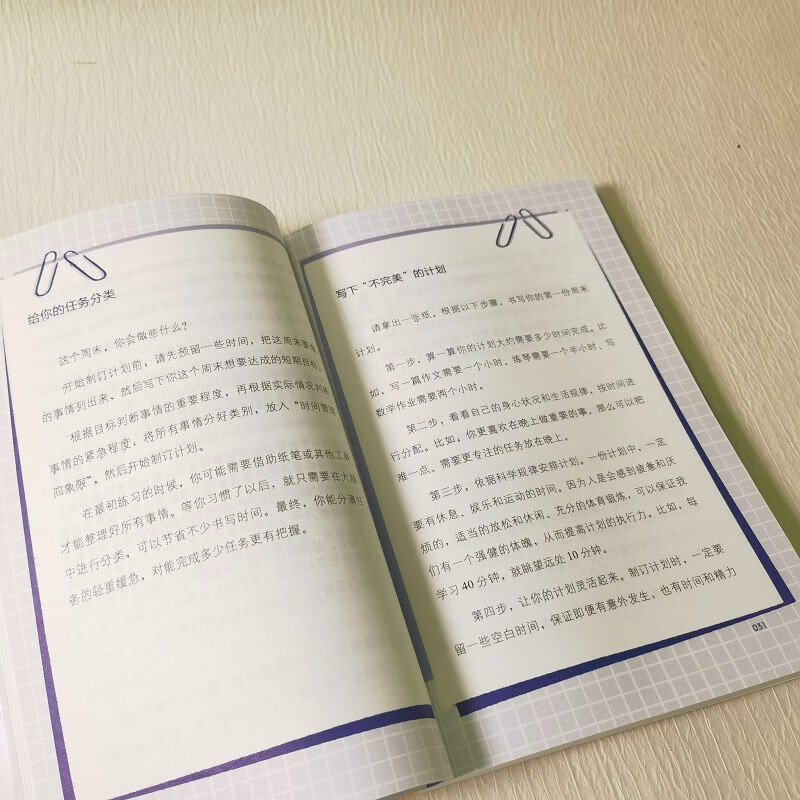 给你的任务分类
这个周末，你会做些什么？
开始制订计划前，请先预留一些时间，把这周末要做
的事情列出来，然后写下你这个周末想要达成的短期目标。
根据目标判断事情的重要程度，再根据实际情况判断
事情的紧急程度，将所有事情分好类别，放入“时间管理
四象限”，然后开始制订计划。
在最初练习的时候，你可能需要借助纸笔或其他工具
才能整理好所有事情。等你习惯了以后，就只需要在大脑
中进行分类，可以节省不少书写时间。最终，你能分清任
务的轻重缓急，对能完成多少任务更有把握。
写下“不完美”的计划
请拿出一张纸，根据以下步骤，书写你的第一份周末
计划。
第一步，算一算你的计划大约需要多少时间完成。比
如，写一篇作文需要一个小时，练琴需要一个半小时，写
数学作业需要两个小时。
第二步，看看自己的身心状况和生活规律，按时间进
行分配。比如，你更喜欢在晚上做重要的事，那么可以把
难一点、需要更专注的任务放在晚上。
第三步，依据科学规律安排计划。一份计划中，一定
要有休息、娱乐和运动的时间。因为人是会感到疲惫和厌
烦的，适当的放松和休闲、充分的体育锻炼，可以保证我
们有一个强健的体魄，从而提高计划的执行力。比如，每
学习40分钟，就眺望远处10分钟。
第四步，让你的计划灵活起来。制订计划时，一定要
留一些空白时间，保证即便有意外发生，也有时间和精力
031